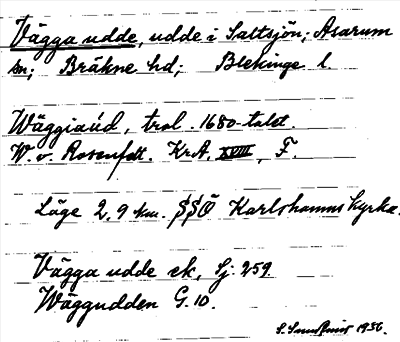 Vägga udde, udde i Saltsjön; Asarum
sn; Bräkne hd; Blekinge l
Wäggiaúd, trol. 1680-talet.
W. v. Rosenfelt. KrA. XVIII, F.
Läge 2,9 km. SSÖ Karlshamns kyrka.
Vägga udde ek, Sj. 259.
Wäggudden G. 10.
S. 1936.